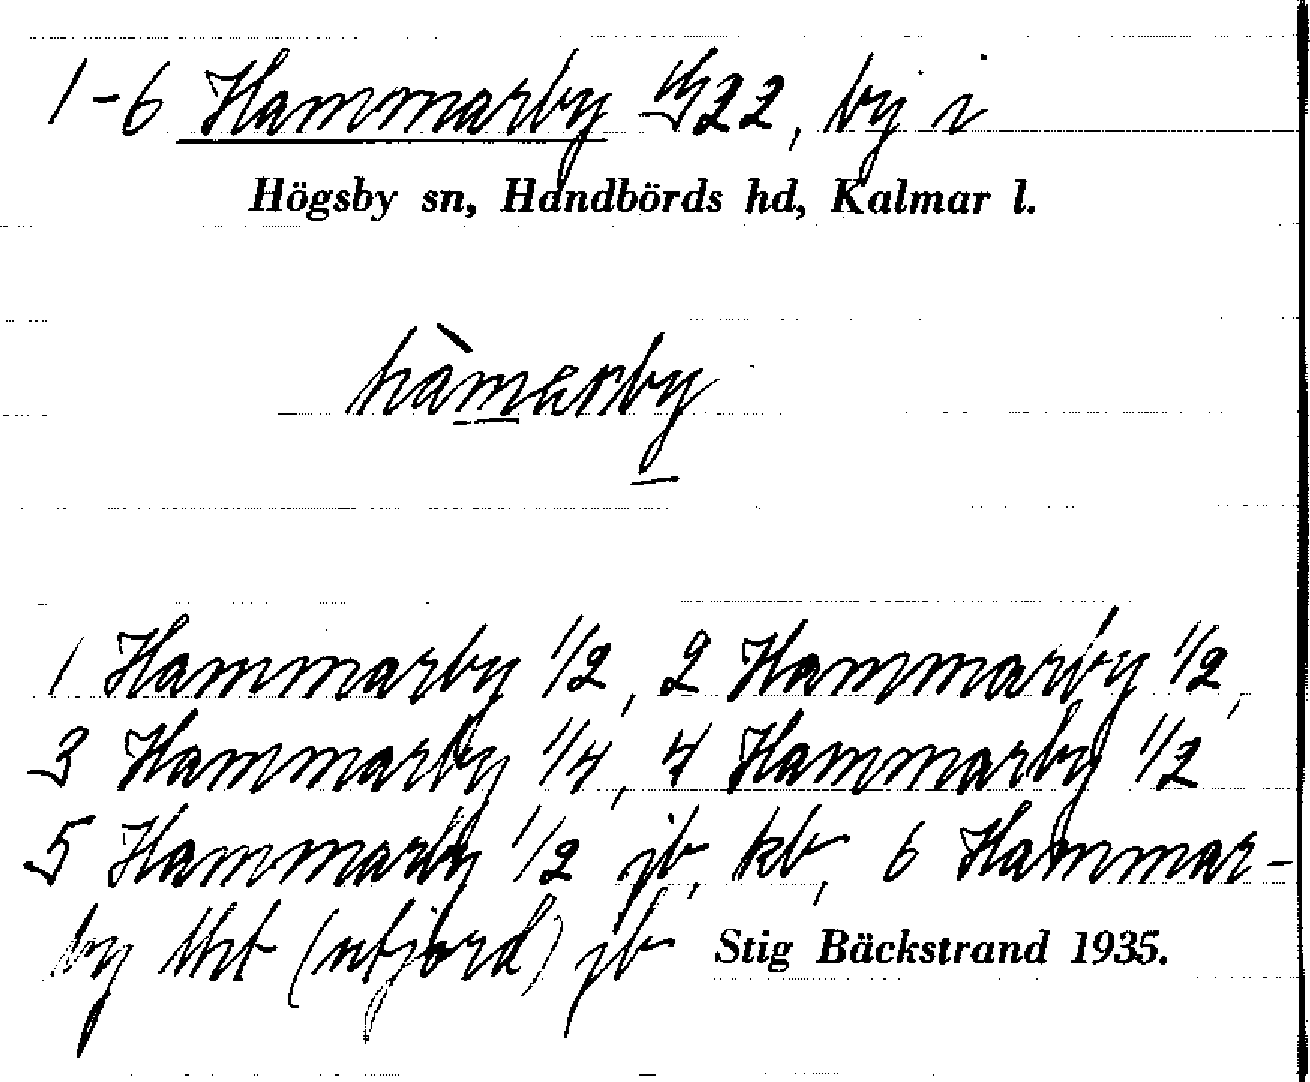 1-6 Hammarby 22, by i
Högsby sn, Handbörds hd, Kalmar l.
hàmarby
1 Hammarby 1/2, 2 Hammarby 1/2,
3 Hammarby 1/4, 4 Hammarby 1/2
5 Hammarby 1/2 jb, kb, 6 Hammar-
by (utjord) jb Stig Bäckstrand 1935.